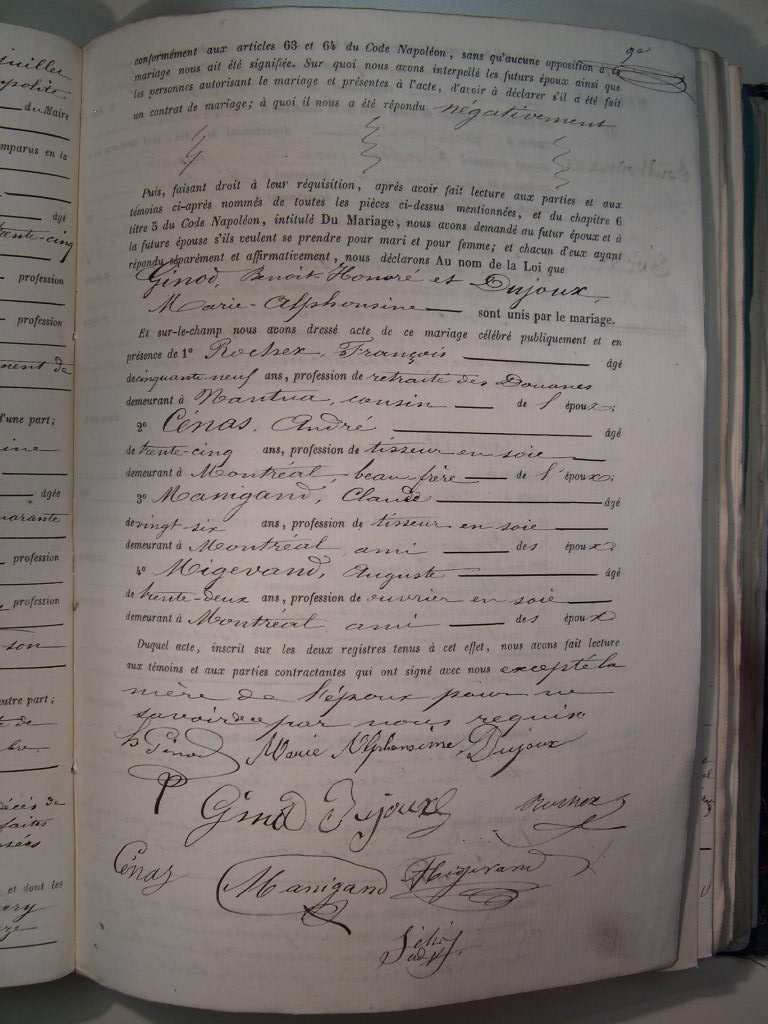 juillet
ippolite
du Maire
omparus en la
âgé
trente-cinq
profession
profession
ment de
d'une part;
ine
âgée
uarante
profession
profession
son
autre part;
te de
décès de
faites
usées
et dont les
ery
conformément aux articles 63 et 64 du Code Napoléon, sans qu'aucune opposition à ce
mariage nous ait été signifiée. Sur quoi nous avons interpellé les futurs époux ainsi que
les personnes autorisant le mariage et présentes à l'acte, d'avoir à déclarer s'il a été fait
un contrat de mariage; à quoi il nous a été répondu négativement
Puis, faisant droit à leur réquisition, après avoir fait lecture aux parties et aux
témoins ci-après nommés de toutes les pièces ci-dessus mentionnées, et du chapitre 6
titre 5 du Code Napoléon, intitulé Du Mariage, nous avons demandé au futur époux et à
la future épouse s'ils veulent se prendre pour mari et pour femme; et chacun d'eux ayant
répondu séparément et affirmativement, nous déclarons Au nom de la Loi que
Ginod, Benoit-Honoré et Dujoux,
Marie-Alphonsine sont unis par le mariage.
Et sur-le-champ nous avons dressé acte de ce mariage célébré publiquement et en
présence de 1º Rochex, François âgé
de cinquante-neuf ans, profession de retraité des Douanes
demeurant à Nantua, cousin de l'époux;
2º Cénas, André âgé
de trente-cinq ans, profession de tisseur en soie
demeurant à Montréal beau frère de l'époux;
3º Manigand, Claude âgé
de vingt-six ans, profession de tisseur en soie
demeurant à Montréal ami des époux
4º Migevand, Auguste âgé
de trente-deux ans, profession de ouvrier en soie
demeurant à Montréal ami des époux
Duquel acte, inscrit sur les deux registres tenus à cet effet, nous avons fait lecture
aux témoins et aux parties contractantes qui ont signé avec nous excepté la
mère de l'époux pour ne
savoir de ce par nous requise
h Ginod Marie Alphonsine Dujoux
Ginod Dujoux Rochex
Cénas Manigand Migevand